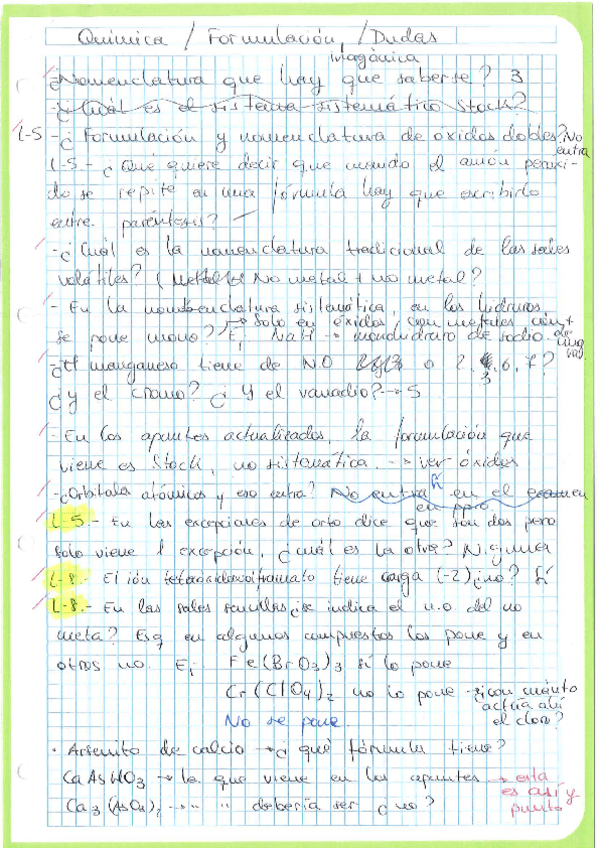 Química / Formulación / Dudas
inorgánica
¿Nomenclatura que hay que saberse? 3
-¿Cuál es el sistema sistemático Stock?
L-5 -¿Formulación y nomenclatura de óxidos dobles? No entra
L-5 - ¿Qué quiere decir que cuando el anión peroxi-
do se repite en una fórmula hay que escribirlo
entre parentesis?
-¿Cuál es la nomenclatura tradicional de las sales
volátiles? ( No metal + no metal?
- En la nomenclatura sistemática, en los hidruros,
se pone mono? → solo en óxidos con metales con +
Ej NaH → monohidruro de sodio.
¿El manganeso tiene de NO o 2, 3, 6, 7?
¿Y el cromo? ¿Y el vanadio? → 5
- En los apuntes actualizados, la formulación que
viene es Stock, no sistemática. → ver óxidos
-¿Orbitales atómicos y eso entra? No entra en el examen
en ppio
L-5.- En las excepciones de orto dice que son dos pero
solo viene 1 excepción, ¿cuál es la otra? Ninguna
L-8.- El ión tiene carga (-2) ¿no? Sí
L-8.- En las sales sencillas ¿se indica el n.o del no
metal? Esq en algunos compuestos los pone y en
otros no. Ej Fe(BrO3)3 sí lo pone
Cr(ClO4)2 no lo pone → ¿con cuánto
actúa ahí
el cloro?
No se pone
· Arsenito de calcio → ¿qué fórmula tiene?
CaAsHO3 → la que viene en los apuntes → esta
es así y
punto
Ca3(AsO3)2 → " " debería ser ¿no?